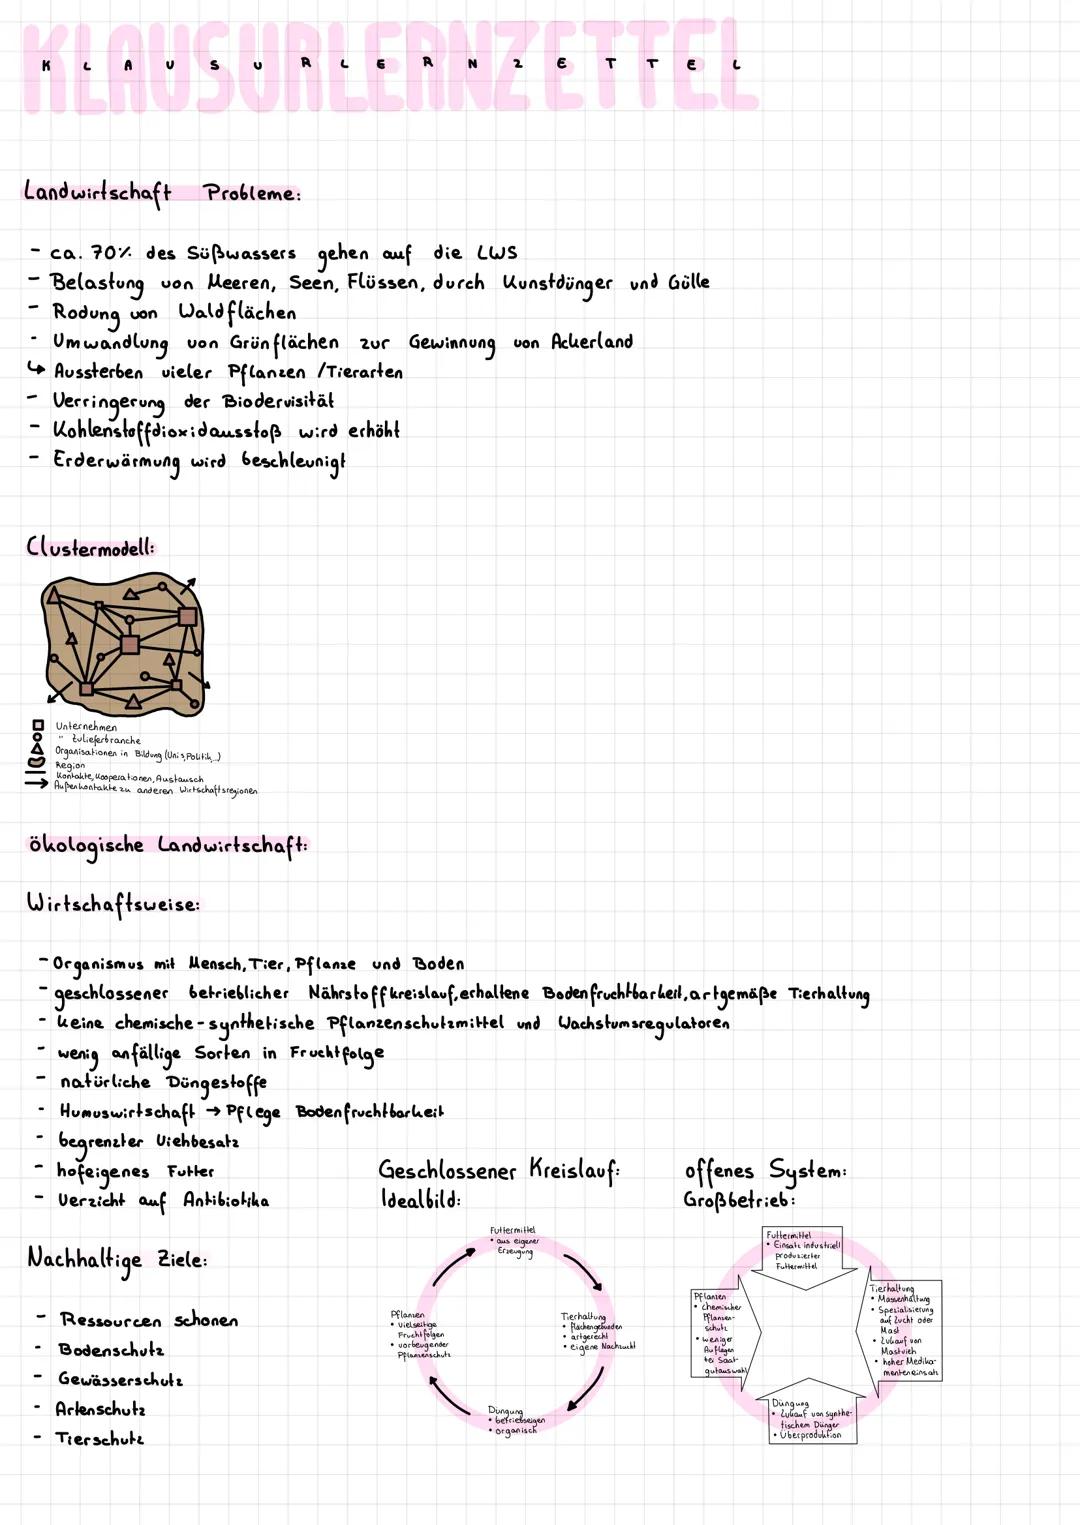 KLAUSURLERNZETTEL
K L A U S U R L E R N Z E T T E L
Landwirtschaft Probleme:
- ca. 70% des Süßwassers gehen auf die LWS
- Belastung von Meeren, Seen, Flüssen, durch Kunstdünger und Gülle
- Rodung von Waldflächen
- Umwandlung von Grünflächen zur Gewinnung von Ackerland
↳ Aussterben vieler Pflanzen /Tierarten
- Verringerung der Biodervisität
- Kohlenstoffdioxidausstoß wird erhöht
- Erderwärmung wird beschleunigt
Clustermodell:
Unternehmen
" Zulieferbranche
Organisationen in Bildung (Unis, Politik,..)
Region
Kontakte, Kooperationen, Austausch
Außenkontakte zu anderen Wirtschaftsregionen
ökologische Landwirtschaft:
Wirtschaftsweise:
- Organismus mit Mensch, Tier, Pflanze und Boden
- geschlossener betrieblicher Nährstoffkreislauf, erhaltene Bodenfruchtbarkeit, artgemäße Tierhaltung
- keine chemische-synthetische Pflanzenschutzmittel und Wachstumsregulatoren
- wenig anfällige Sorten in Fruchtfolge
- natürliche Düngestoffe
- Humuswirtschaft → Pflege Bodenfruchtbarkeit
- begrenzter Viehbesatz
- hofeigenes Futter
- Verzicht auf Antibiotika
Nachhaltige Ziele:
- Ressourcen schonen
- Bodenschutz
- Gewässerschutz
- Artenschutz
- Tierschutz
Geschlossener Kreislauf:
Idealbild:
Futtermittel
• aus eigener
Erzeugung
Tierhaltung
• flächengebunden
• artgerecht
• eigene Nachzucht
Düngung
• betriebseigen
• organisch
Pflanzen
• vielseitige
Fruchtfolgen
• vorbeugender
Pflanzenschutz
offenes System:
Großbetrieb:
Futtermittel
• Einsatz industriell
produzierter
Futtermittel
Tierhaltung
• Massenhaltung
• Spezialisierung
auf Zucht oder
Mast
• Zukauf von
Mastvieh
• hoher Medika-
menteneinsatz
Düngung
• Zukauf von synthe-
tischem Dünger
• Überproduktion
Pflanzen
• chemischer
Pflanzen-
schutz
• weniger
Auflagen
bei Saat-
gutauswahl